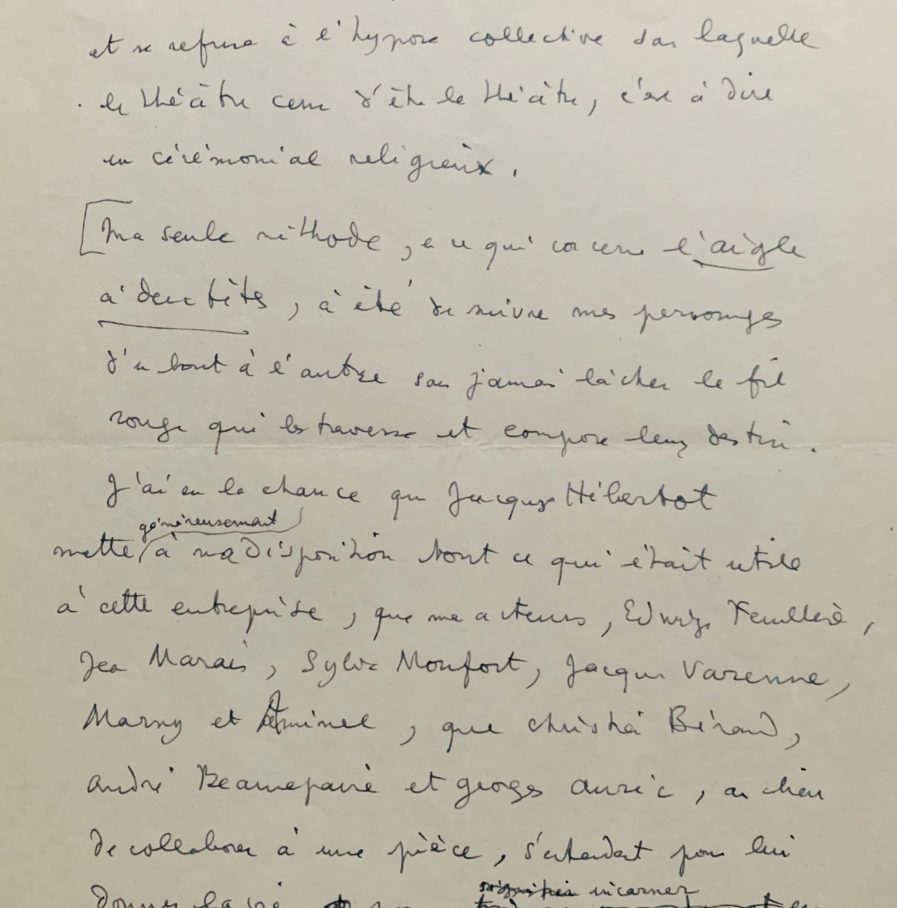 et se refuse à l'hypnose collective sans laquelle
le théâtre cesse d'être le théâtre, c'est à dire
un cérémonial religieux.
[Ma seule méthode, en ce qui concerne l'aigle
à deux têtes, a été de suivre mes personnages
d'un bout à l'autre sans jamais lâcher le fil
rouge qui les traverse et compose leurs destin.
J'ai eu la chance que Jacques Hébertot
généreusement
mette à ma disposition tout ce qui était utile
à cette entreprise, que mes acteurs, Edwige Feuillère,
Jean Marais, Sylvia Monfort, Jacques Varenne,
Marny et Aminel, que Christian Bérard,
André Beaurepaire et georges Auric, au lieu
de collaborer à une pièce, s'entendent pour lui
incarner
donner la vie